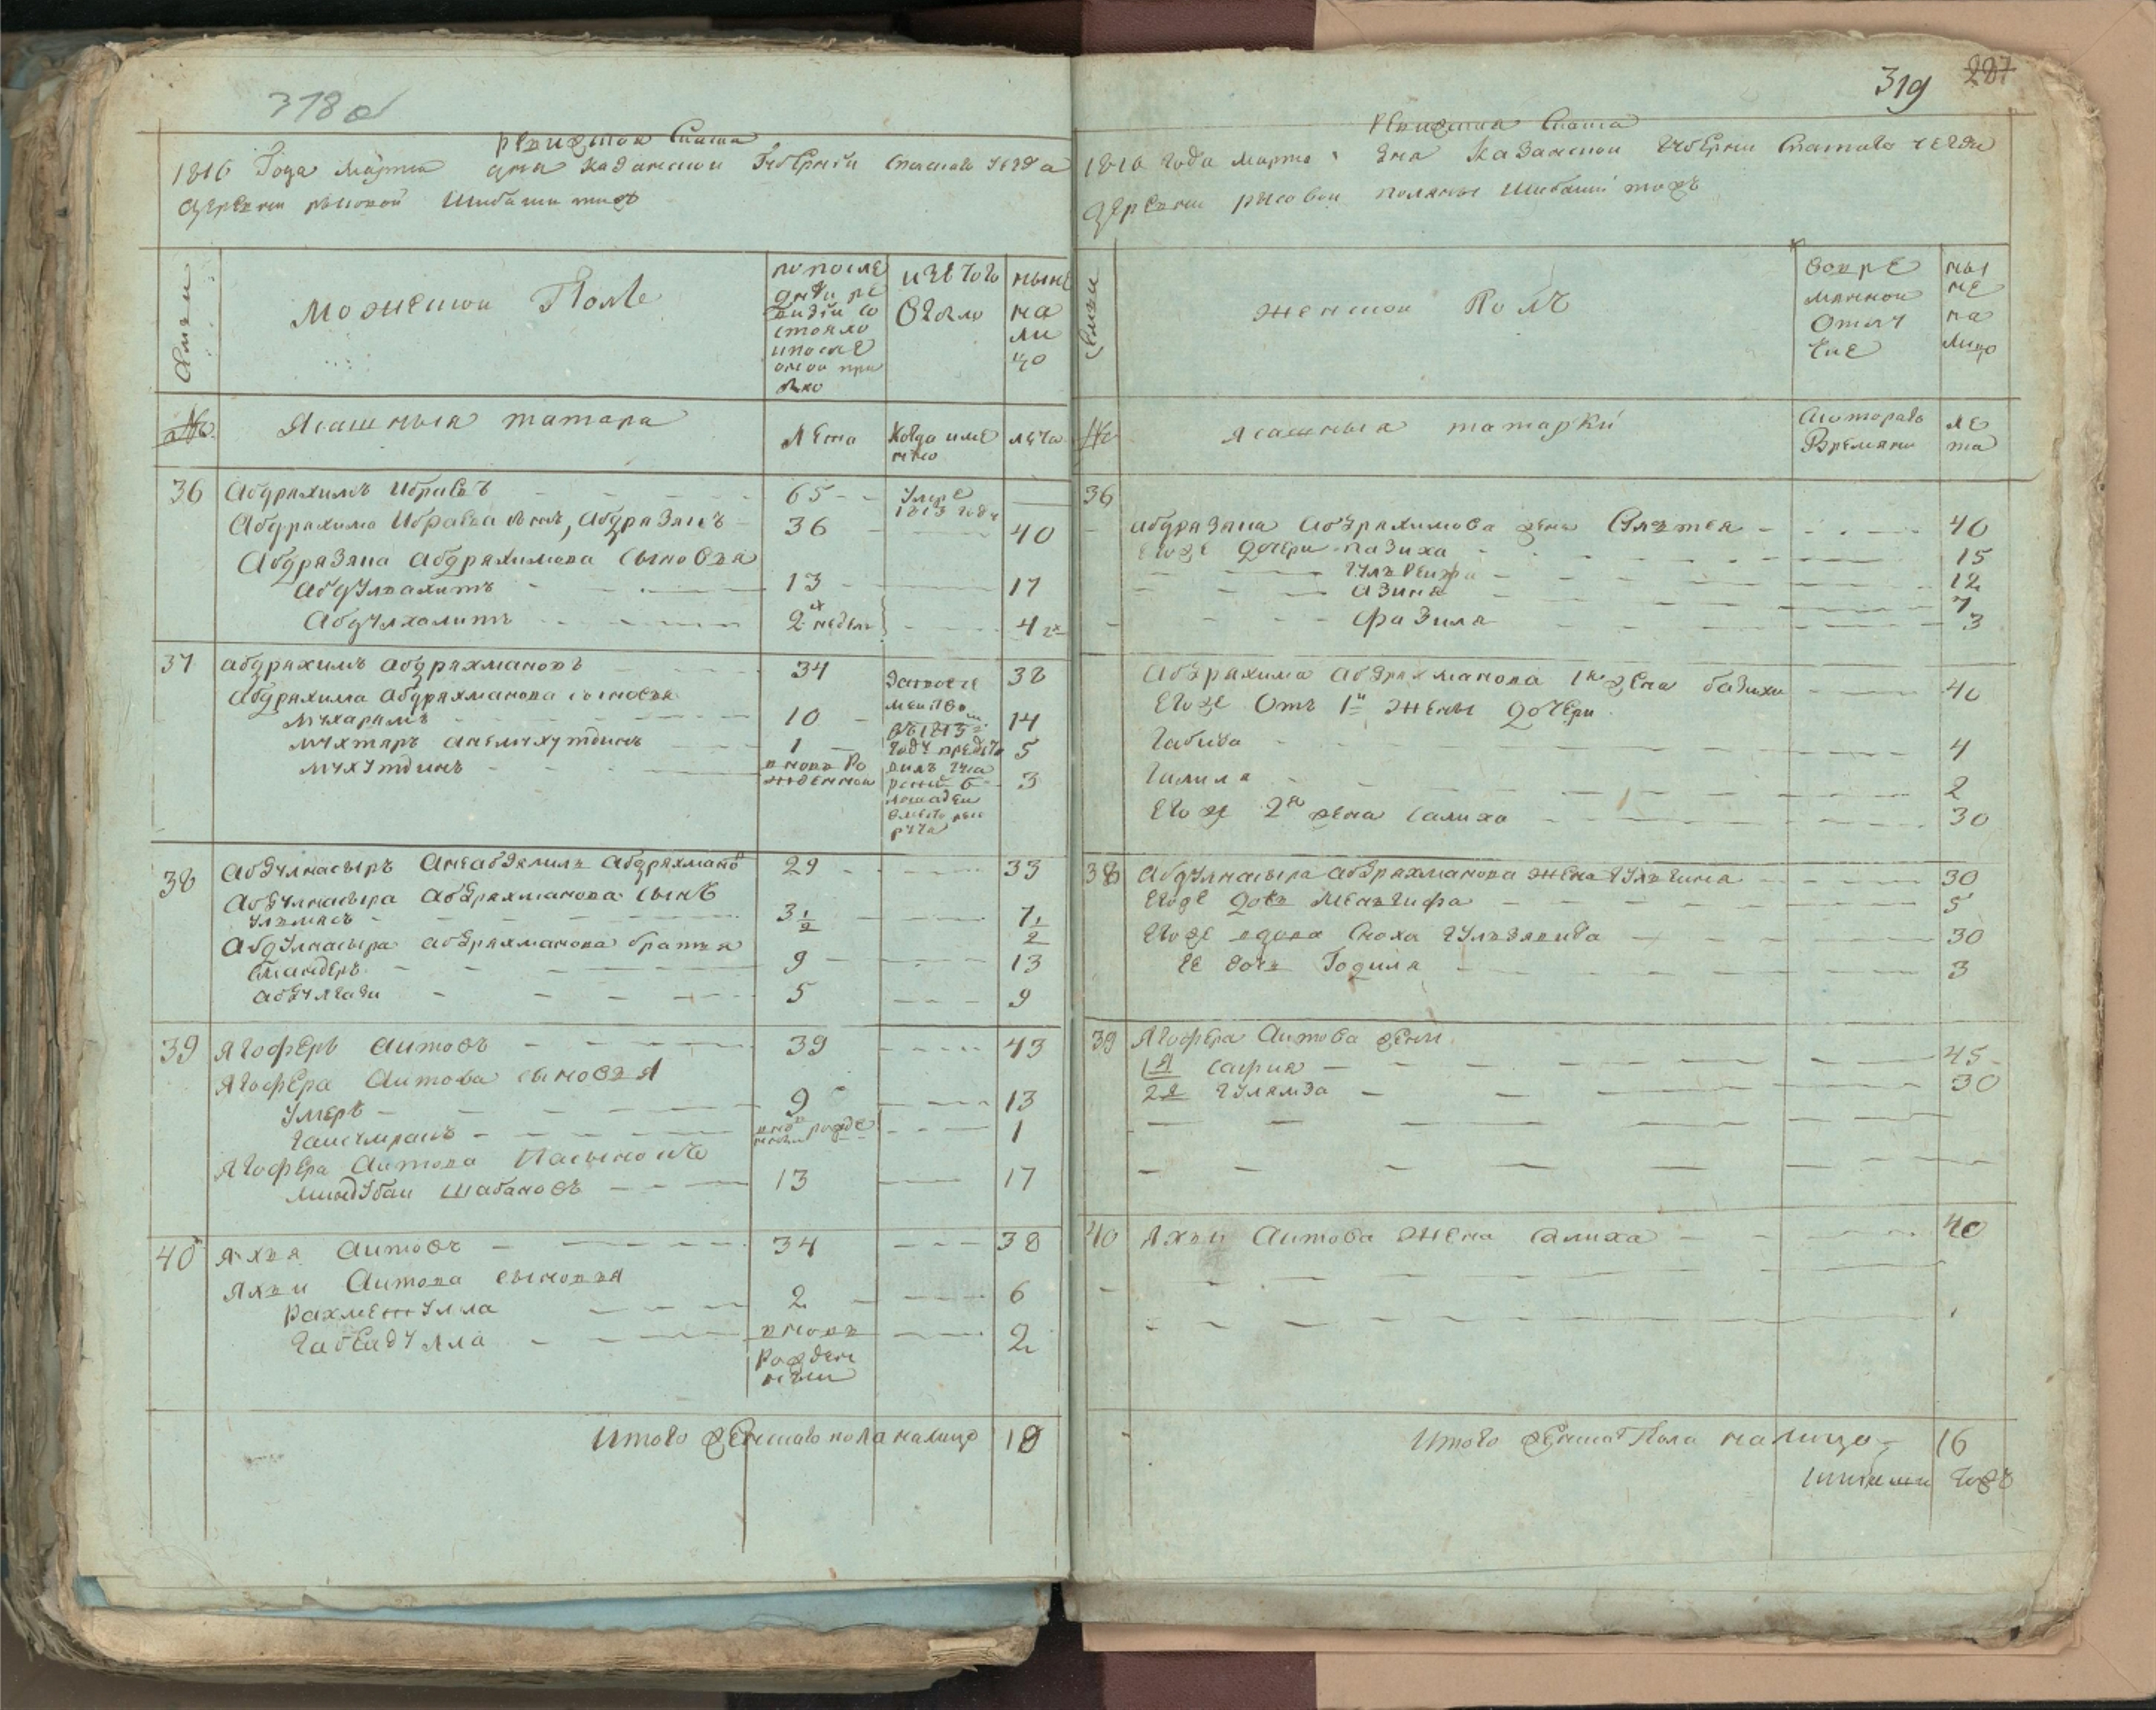 318 об
Ревизская Сказка
1816 Года Марта дня казанской Губернии Спаскаго уезда
деревни рысовой Шибаши тожъ
Семьи
Мужеской Полъ
по после
дней ре
визiи со
стояло
и после
оной при
было
изъ того
выбыло
ныне
на
ли
цо
№
Ясашныя татара
Лета
Когда име
нно
лета
36
Абдряхимъ Ибраевъ
65
Умре
1813 году
Абдряхима Ибраева сынъ, Абдрязянъ
36
40
Абдрязяна Абдряхимова сыновья
Абдулвахитъ
13
17
Абдулхалитъ
2х неделъ
4 2х
37
абдряхимъ абдряхмановъ
34
38
Абдряхима Абдряхманова сыновья
Мухарямъ
10
14
Мухтяръ онъ
1
5
Мухутдинъ
вновь Ро
жденной
3
въ 1813
году
38
Абдулнасыръ Абдряхмано
29
33
Абдулнасыра Абдряхманова сынъ
Ульмясъ
3 1/2
7 1/2
Абдулнасыра абдряхманова братья
Смандеръ
9
13
абдулгази
5
9
39
Ягоферъ Аитовъ
39
43
Ягофера Аитова сыновья
Умеръ
9
13
вновь рожде
1
Ягофера Аитова Пасынокъ
миндубаи шабановъ
13
17
40
Яхъя Аитовъ
34
38
Яхъи Аитова сыновья
Рахметулла
2
6
Габеидулла
вновь
Рожден
ныи
2
Итого женскаго пола налицо 18
319 287
Ревизская Сказка
1816 года марта дня Казанской Губернии Спаскаго уезда
деревни рысовои поляны Шибаши тожъ
Семьи
женскои Полъ
во вре
мянной
Отлуч
ке
ны
не
на
лицо
№
Ясашныя татарки
Съ котораго
Времяни
ле
та
36
абдрязяна абдряхимова жена
40
Егоже дочери назиха
15
12
азима
7
фазиля
3
Абдряхима абдряхманова 1я жена базиха
40
Егоже Отъ 1й жены дочери
Габида
4
Галиля
2
Его же 2я жена салиха
30
38
Абдулнасыра абдряхманова жена Гульгина
30
Егоже дочь Менгифа
5
Егоже вдова сноха Гульзявида
30
Ее дочь Годиля
3
39
Ягофера Аитова жены
1я сафия
45
2я Гулямза
30
40
Яхъи Аитова жена салиха
40
Итого женскаго Пола налицо 16